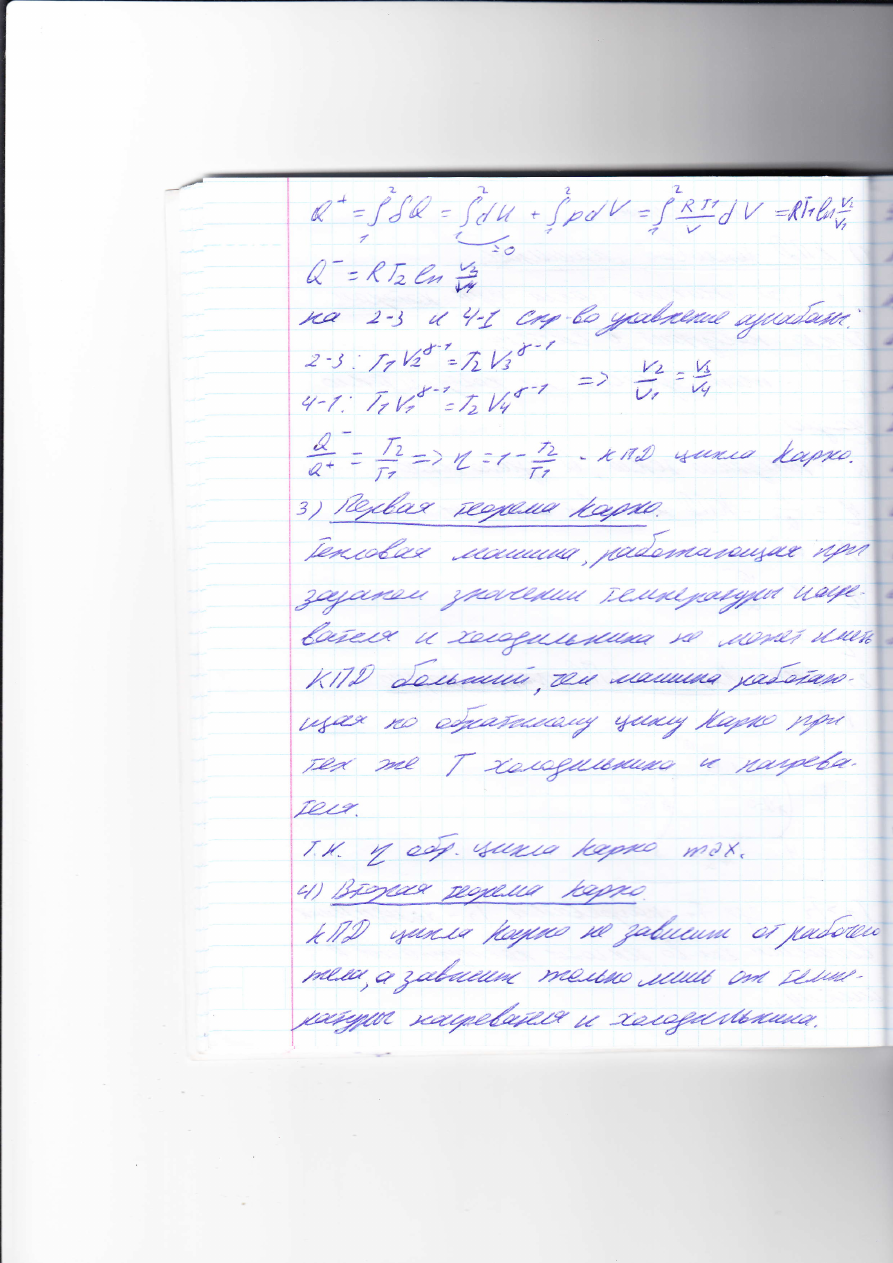 Q⁺ = ∫₁² δQ = ∫₁² dU + ∫₁² pdV = ∫₁² RT₁/V dV = RT₁ ln V₂/V₁
=0
Q⁻ = RT₂ ln V₃/V₄
на 2-3 и 4-1 спр-во уравнение адиабаты:
2-3: T₁V₂^γ-1 = T₂V₃^γ-1
=> V₂/V₁ = V₃/V₄
4-1: T₁V₁^γ-1 = T₂V₄^γ-1
Q⁻/Q⁺ = T₂/T₁ => η = 1 - T₂/T₁ - КПД цикла Карно.
3) Первая теорема Карно.
Тепловая машина, работающая при
заданом значении температуры нагре-
вателя и холодильника не может иметь
КПД больший, чем машина работаю-
щая по обратимому циклу Карно при
тех же T холодильника и нагрева-
теля.
Т.к. η обр. цикла Карно max.
4) Вторая теорема Карно.
КПД цикла Карно не зависит от рабочего
тела, а зависит только лишь от темпе-
ратуры нагревателя и холодильника.